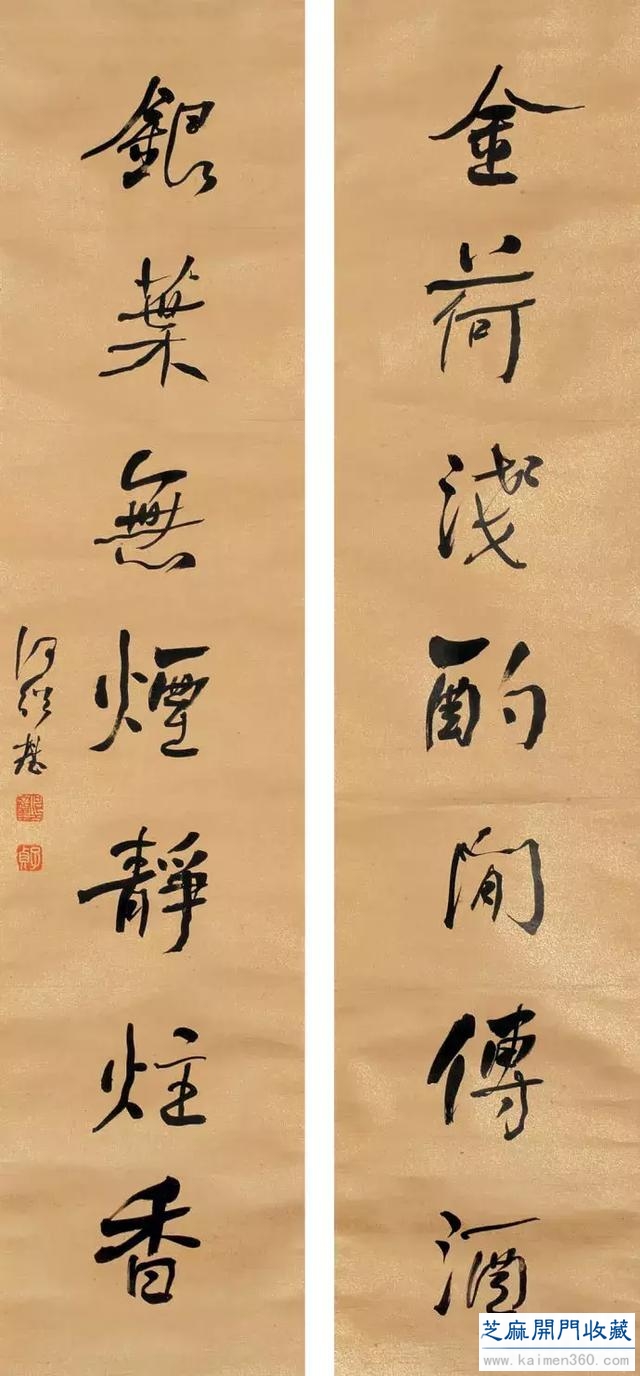 金荷淺酌閒傳酒
銀葉無煙靜炷香
何紹基
子貞
芝麻開門收藏
www.kaimen360.com